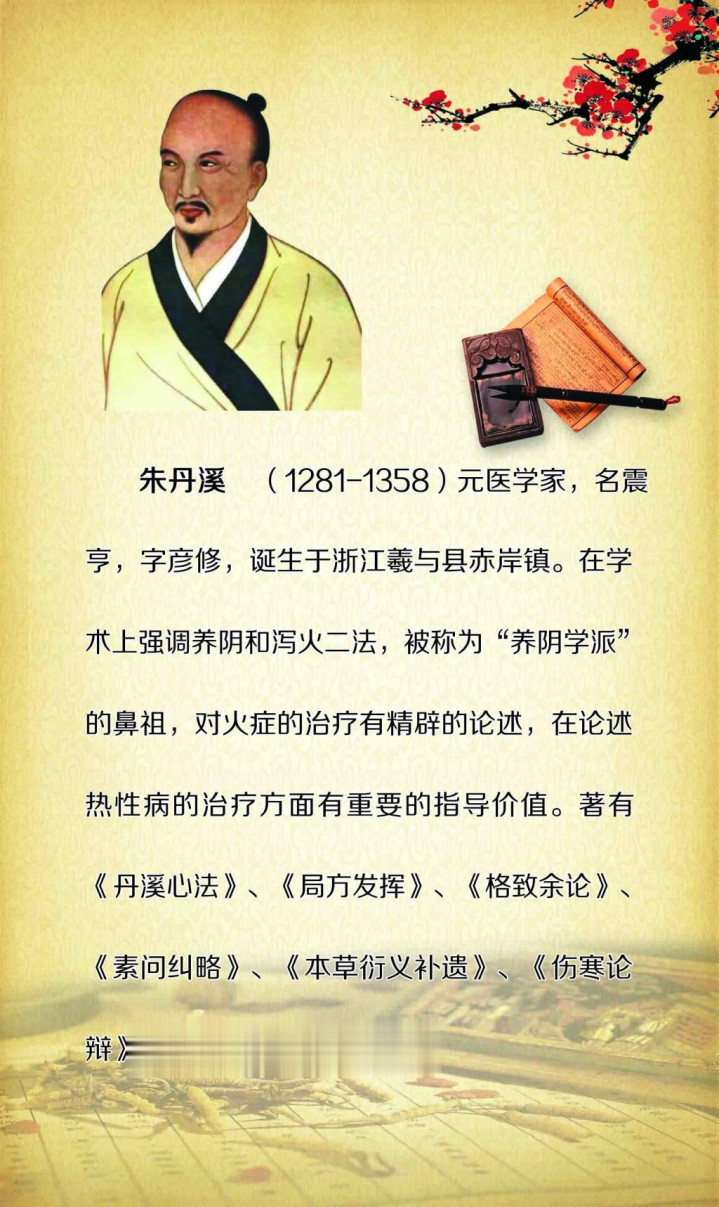 朱丹溪 （1281-1358）元医学家，名震
亨，字彦修，诞生于浙江羲与县赤岸镇。在学
术上强调养阴和泻火二法，被称为“养阴学派”
的鼻祖，对火症的治疗有精辟的论述，在论述
热性病的治疗方面有重要的指导价值。著有
《丹溪心法》、《局方发挥》、《格致余论》、
《素问纠略》、《本草衍义补遗》、《伤寒论
辩》